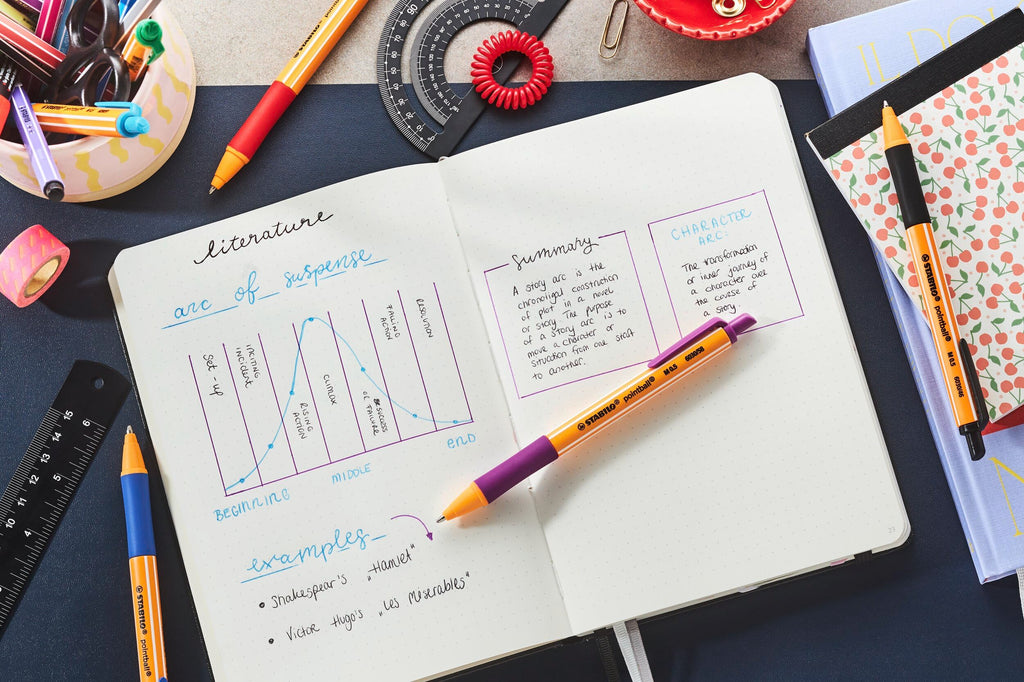 literature
arc of suspense
Set-up
INCITING
INCIDENT
RISING
ACTION
CLIMAX
SUCCESS
OR FAILURE
FALLING
ACTION
RESOLUTION
BEGINNING
MIDDLE
END
examples
• Shakespear's „Hamlet"
• Victor Hugo's „Les Miserables"
summary
A story arc is the
chronoligal construction
of plot in a novel
or story. The purpose
of a story arc is to
move a character or
situation from one state
to another.
CHARACTER
ARC:
The transformation
or inner journey of
a character over
the course of
a story.
33
STABILO® pointball® M 0.5 6030/58
STABILO® pointball® M 0.5 6030/46
STABILO® pointball
IL DO
N
15
14
13
12
11
10
6
5
4
90